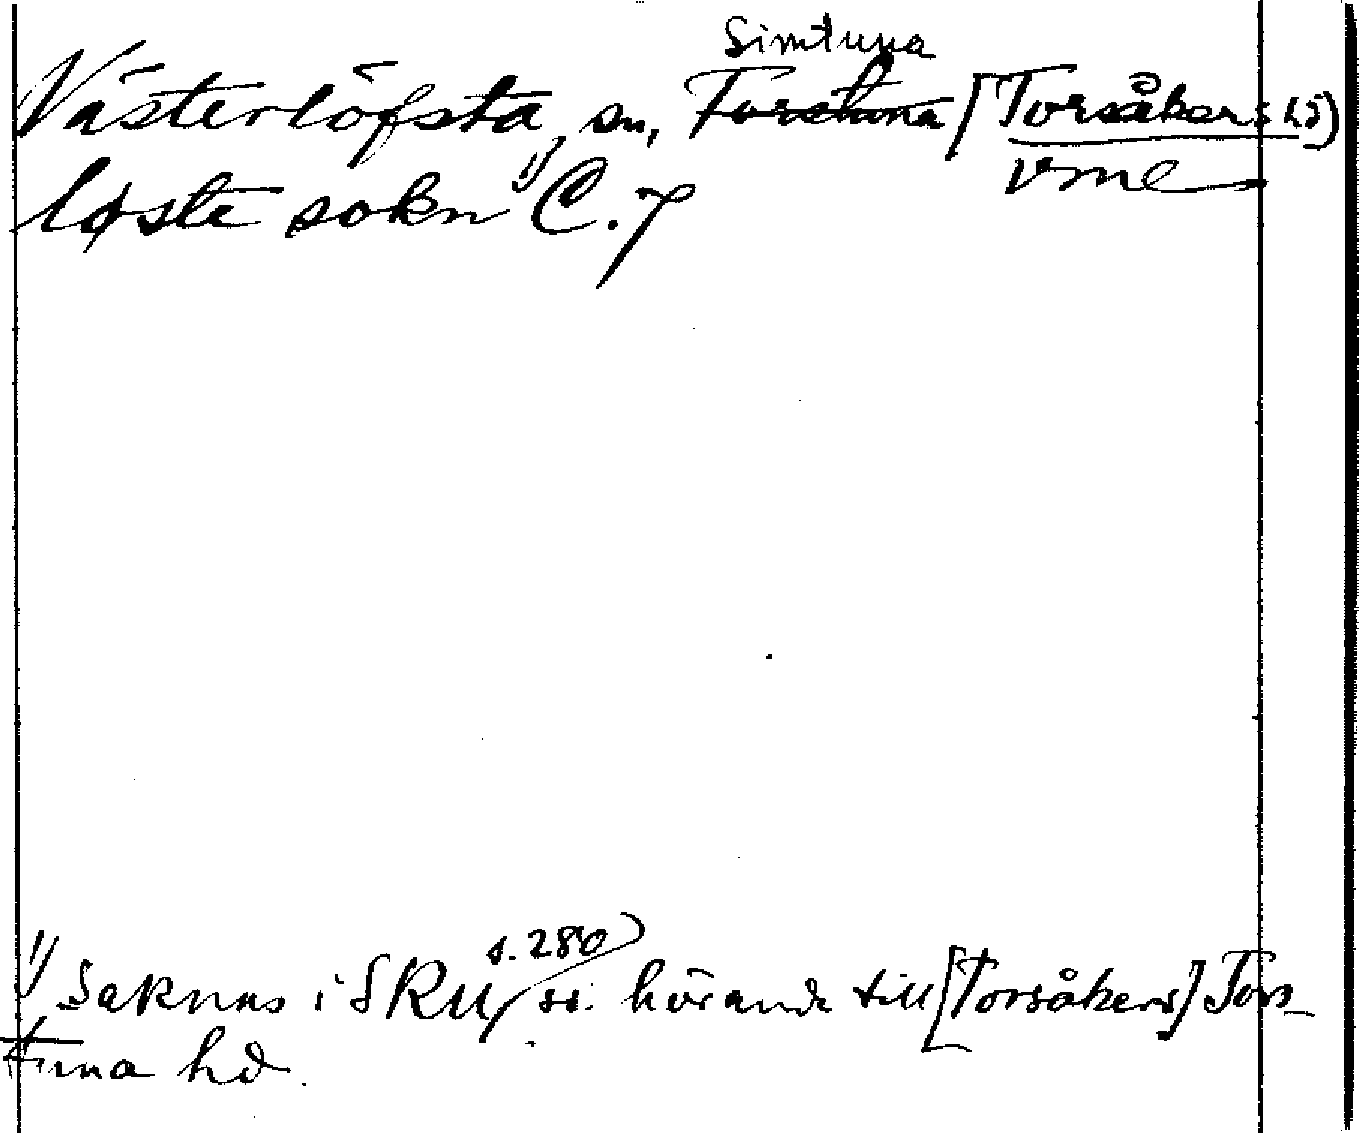 Simtuna
Västerlöfsta, sn, Torstuna [Torsåkers hd)
vme
løste sokn 1) C.7
1) Saknas i SRU s. 280 ss. hörande till [Torsåkers] Tors-
tuna hd.